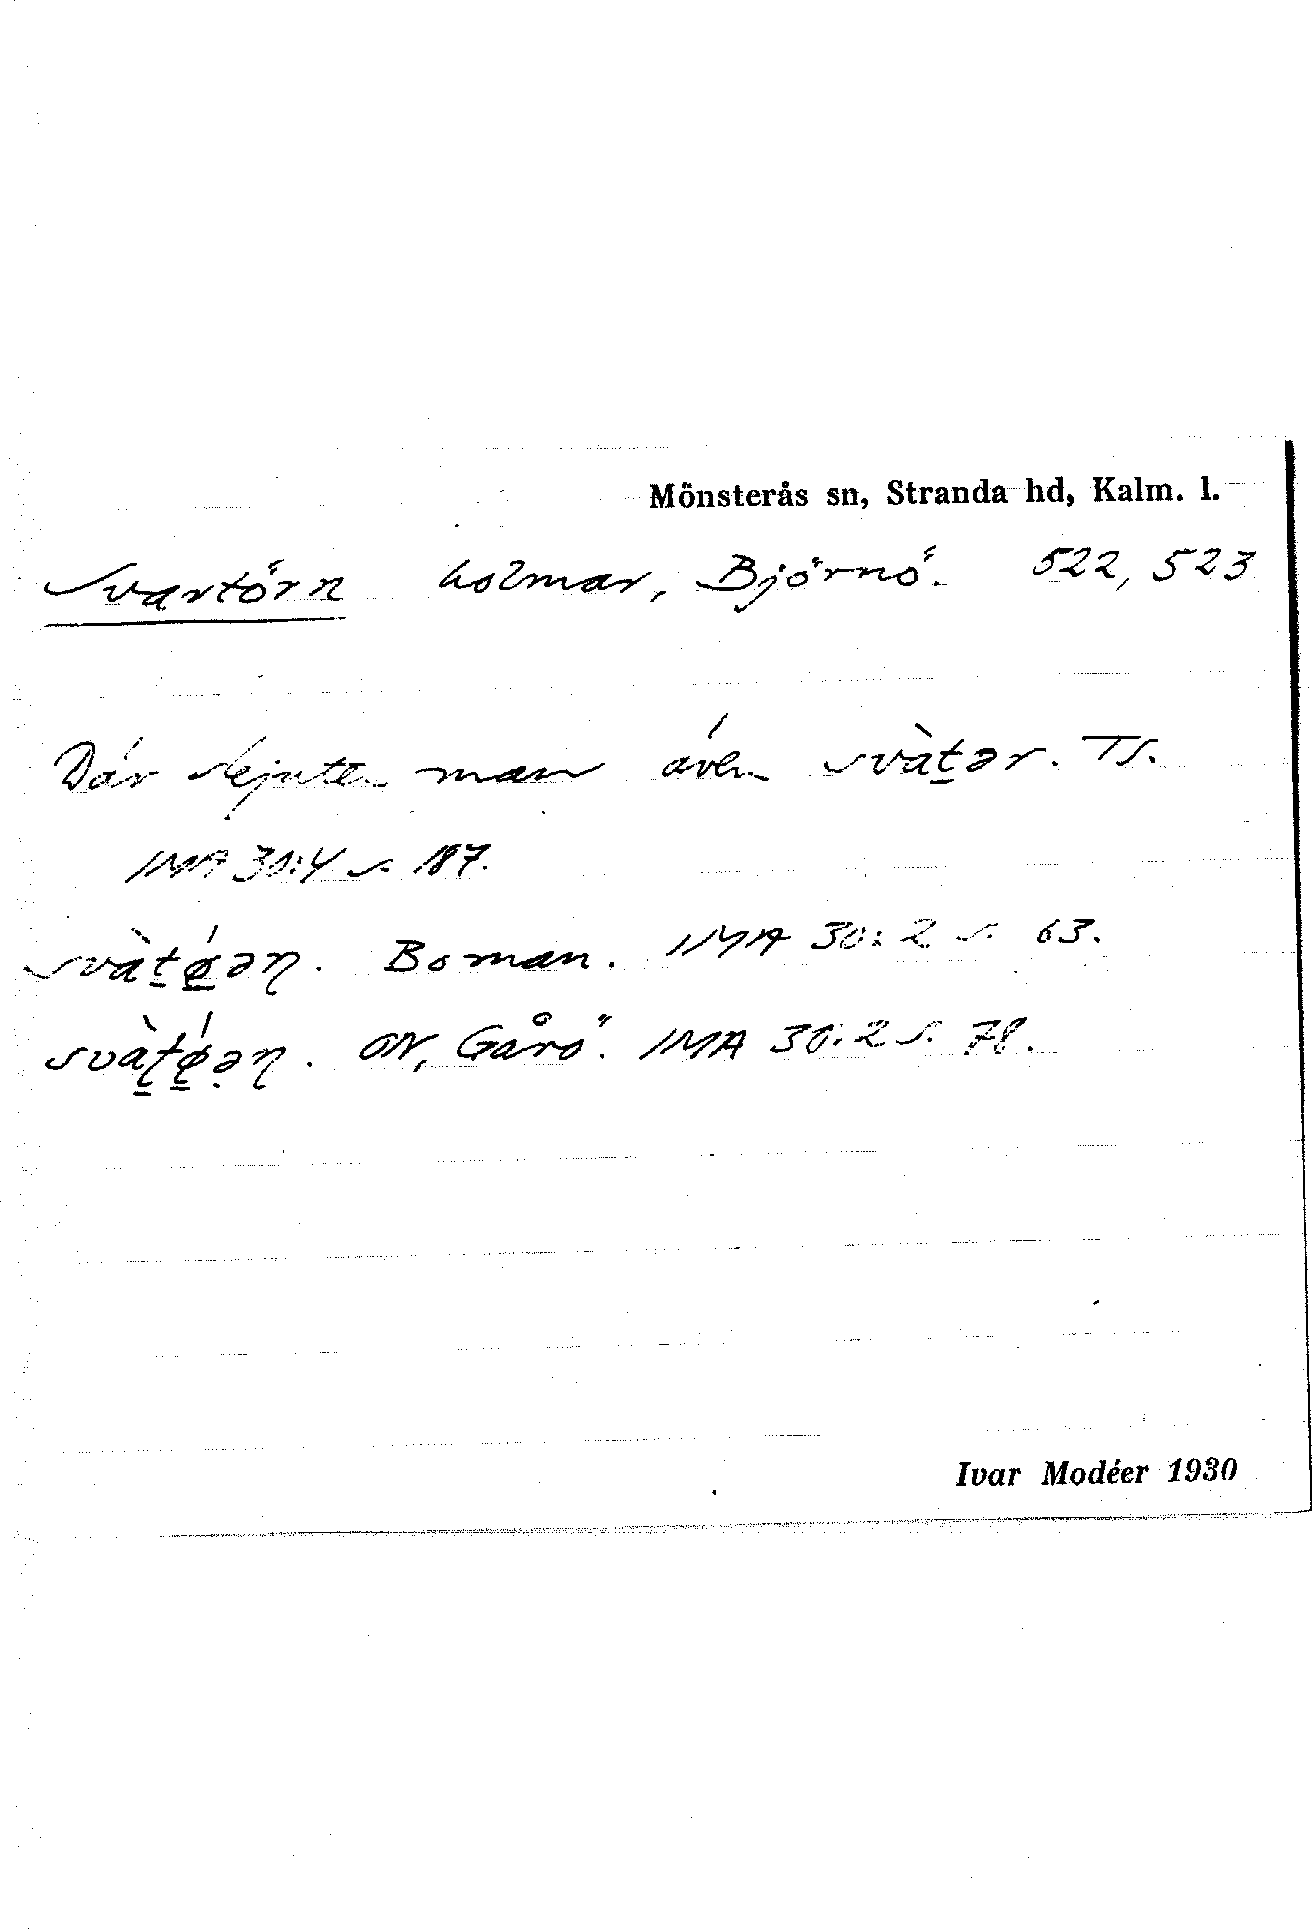 Mönsterås sn, Stranda hd, Kalm. l.
Svartörn holmar, Björnö. 522, 523
Där skjuter man även svàt̠ər. TS.
IMA 30:4 s. 187.
svàt̠ǿ̠əɳ. Boman. IMA 30:2 s. 63.
svàt̠ǿ̠əɳ. ON, Gårö. IMA 30:2 s. 78.
Ivar Modéer 1930